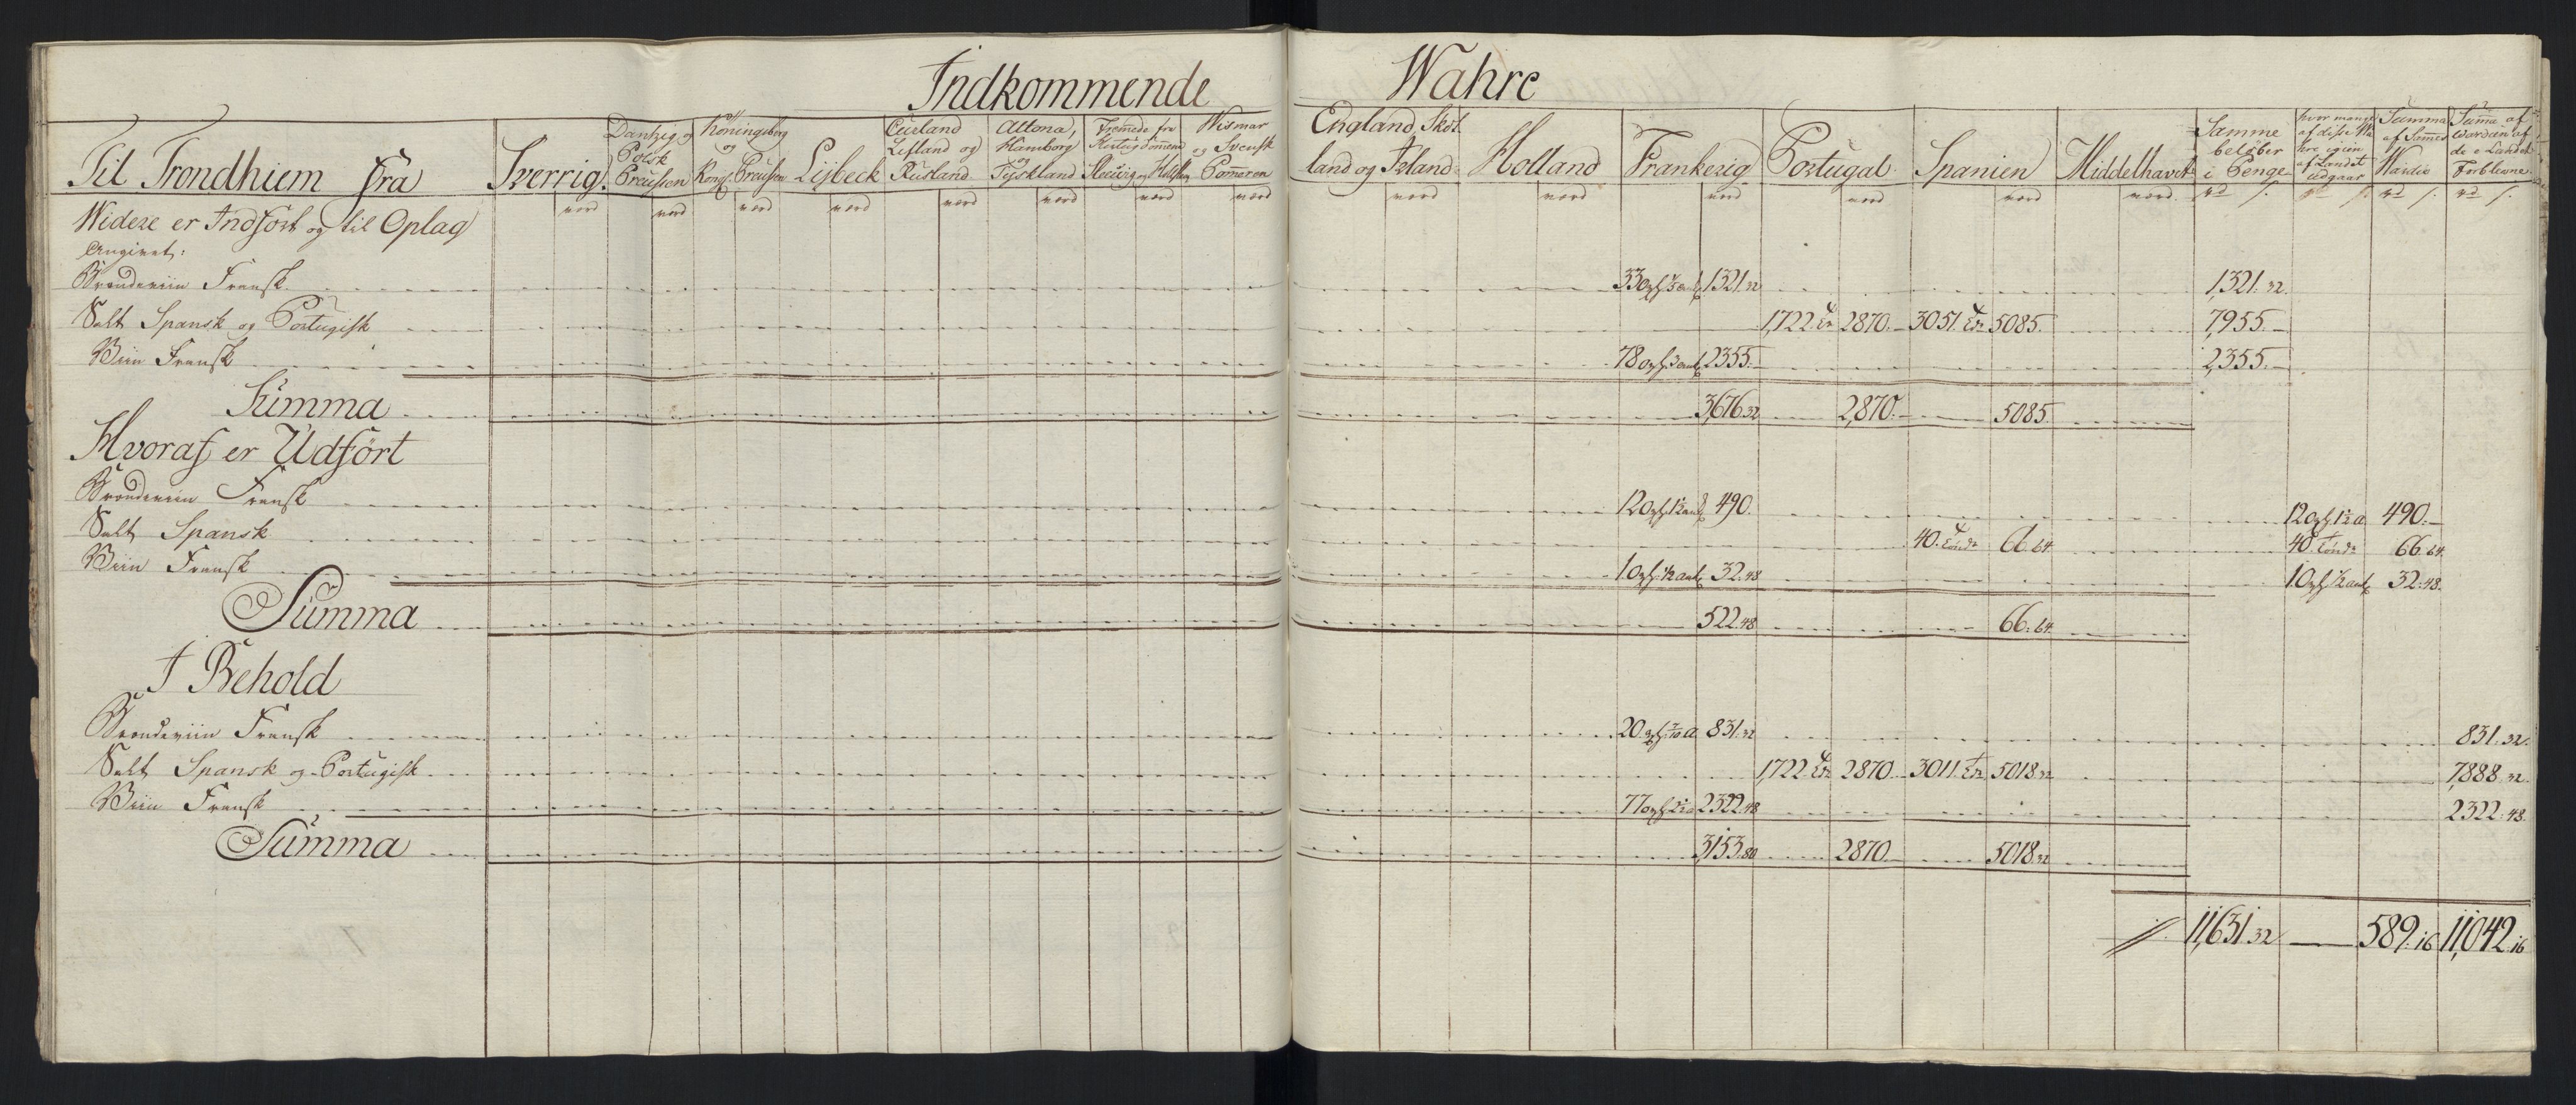 Indkommende Wahre
Til Trondhiem fra
Sverrig
Dantzig og Polsk Preussen
Köningsberg og Kongl. Preussen
Lÿbeck
Curland Lifland og Rusland
Altona, Hamborg og Tÿskland
Fremmede fra Hertugdömmene Slesvig og Holsten
Wismar og Svensk Pomeren
England, Skotland og Irland
Holland
Frankerig
Portugal
Spanien
Middelhavet
Samme beløber i Penge
hvor mange af disse Wahre igien af Landet udgaar
Summa af Sammes Wærdie
Suma af Wærdien af de i Landet Forblevne
værd værd værd værd værd værd værd værd værd værd værd værd værd værd rd s. rd s. rd s. rd s.
Widere er Indført og til Oplag
Angivet:
Brændeviin Fransk 33 oxh 1321.32 1,321.32.
Salt Spansk og Portugisk 1,722. Tr 2870.- 3051. Tr 5085. 7,955.-
Viin Fransk 78 oxh 3 ank 2355.- 2,355.-
Summa 3,676.32 2,870.- 5085.
Hvoraf er Udført
Brændeviin Fransk 12 oxh 1½ ank 490. 12 oxh 1½ a 490.-
Salt Spansk 40. Tönde 66.64 40. Tönde 66.64.
Viin Fransk 1 oxh ½ ank 32.48 1 oxh ½ ank 32.48.
Summa 522.48 66.64
I Behold
Brændeviin Fransk 20 oxh 831.32 831.32.
Salt Spansk og Portugisk 1722. Tr 2870.- 3011. Tr 5018.32 7,888.32.
Viin Fransk 77 oxh 2½ a 2322.48 2322.48.
Summa 3,153.80 2870.- 5018.32
11,631.32 — 589.16 11,042.16